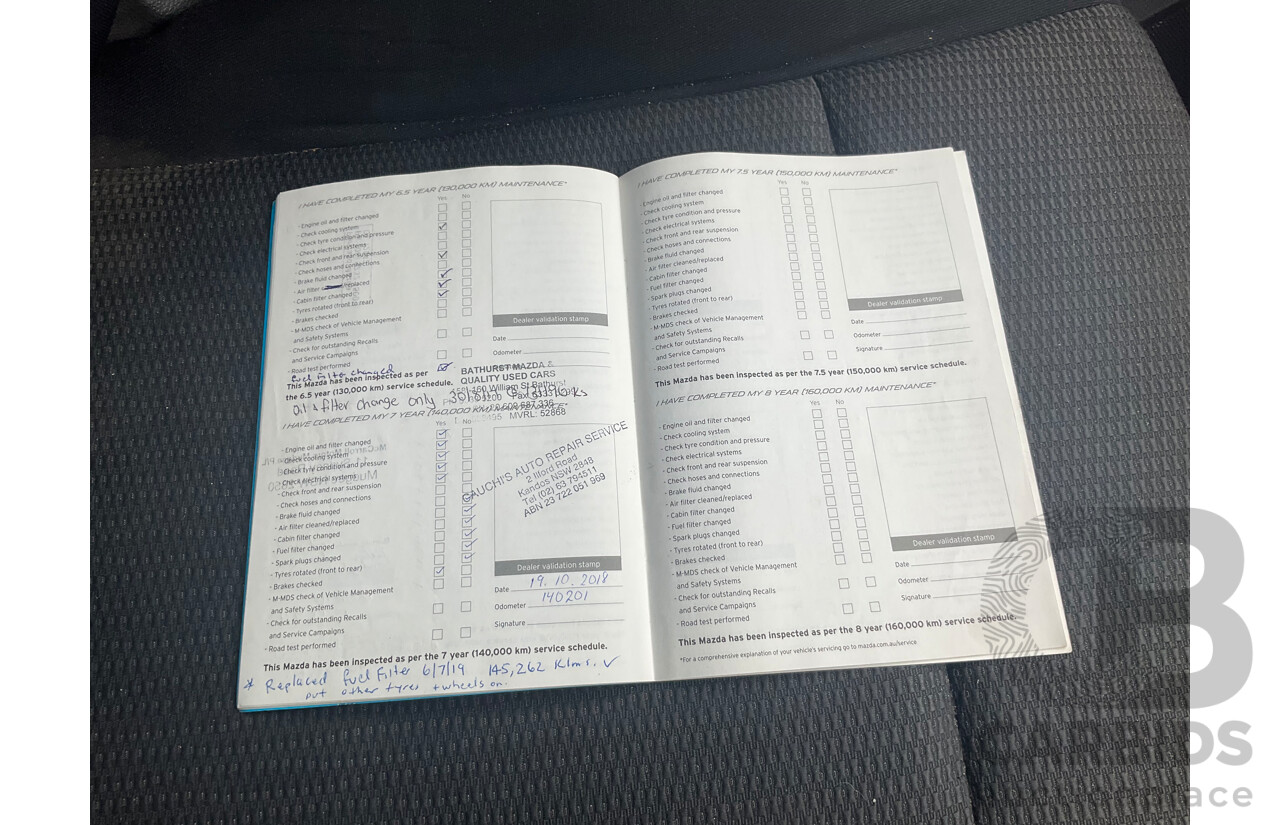 I HAVE COMPLETED MY 6.5 YEAR (130,000 KM) MAINTENANCE*
Yes No
- Engine oil and filter changed
- Check cooling system
- Check tyre condition and pressure
- Check electrical systems
- Check front and rear suspension
- Check hoses and connections
- Brake fluid changed
- Air filter replaced
- Cabin filter changed
- Tyres rotated (front to rear)
- Brakes checked
- M-MDS check of Vehicle Management
and Safety Systems
- Check for outstanding Recalls
and Service Campaigns
- Road test performed
fuel Filter changed
Dealer validation stamp
Date
Odometer
This Mazda has been inspected as per
the 6.5 year (130,000 km) service schedule.
BATHURST MAZDA &
QUALITY USED CARS
William St Bathurst
MVRL: 52868
oil & filter change only
I HAVE COMPLETED MY 7 YEAR (140,000 KM) MAINTENANCE*
Yes No
- Engine oil and filter changed
- Check cooling system
- Check tyre condition and pressure
- Check electrical systems
- Check front and rear suspension
- Check hoses and connections
- Brake fluid changed
- Air filter cleaned/replaced
- Cabin filter changed
- Fuel filter changed
- Spark plugs changed
- Tyres rotated (front to rear)
- Brakes checked
- M-MDS check of Vehicle Management
and Safety Systems
- Check for outstanding Recalls
and Service Campaigns
- Road test performed
GAUCHI'S AUTO REPAIR SERVICE
2 Ilford Road
Kandos NSW 2848
Tel (02) 63 794511
ABN 23 722 051 969
Dealer validation stamp
Date 19.10.2018
Odometer 140201
Signature
This Mazda has been inspected as per the 7 year (140,000 km) service schedule.
* Replaced fuel Filter 6/7/19 145,262 Klms. ✓
put other tyres + wheels on.
I HAVE COMPLETED MY 7.5 YEAR (150,000 KM) MAINTENANCE*
Yes No
- Engine oil and filter changed
- Check cooling system
- Check tyre condition and pressure
- Check electrical systems
- Check front and rear suspension
- Check hoses and connections
- Brake fluid changed
- Air filter cleaned/replaced
- Cabin filter changed
- Fuel filter changed
- Spark plugs changed
- Tyres rotated (front to rear)
- Brakes checked
- M-MDS check of Vehicle Management
and Safety Systems
- Check for outstanding Recalls
and Service Campaigns
- Road test performed
Dealer validation stamp
Date
Odometer
Signature
This Mazda has been inspected as per the 7.5 year (150,000 km) service schedule.
I HAVE COMPLETED MY 8 YEAR (160,000 KM) MAINTENANCE*
Yes No
- Engine oil and filter changed
- Check cooling system
- Check tyre condition and pressure
- Check electrical systems
- Check front and rear suspension
- Check hoses and connections
- Brake fluid changed
- Air filter cleaned/replaced
- Cabin filter changed
- Fuel filter changed
- Spark plugs changed
- Tyres rotated (front to rear)
- Brakes checked
- M-MDS check of Vehicle Management
and Safety Systems
- Check for outstanding Recalls
and Service Campaigns
- Road test performed
Dealer validation stamp
Date
Odometer
Signature
This Mazda has been inspected as per the 8 year (160,000 km) service schedule.
*For a comprehensive explanation of your vehicle's servicing go to mazda.com.au/service